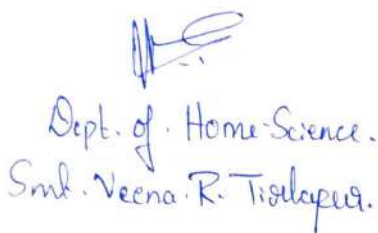 Dept. of. Home-Science.
Smt. Veena. R. Tirlapur.